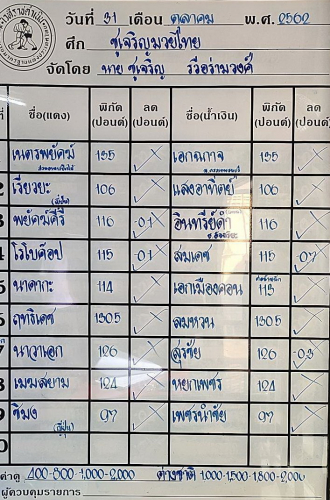 วันที่ 31 เดือน ตุลาคม พ.ศ. 2562
ศึก ชูเจริญมวยไทย
จัดโดย นาย ชูเจริญ รวีอร่ามวงศ์
ที่ ชื่อ(แดง) พิกัด (ปอนด์) ลด (ปอนด์) ชื่อ(น้ำเงิน) พิกัด (ปอนด์) ลด (ปอนด์)
เนตรพยัคฆ์ 135 เอกฉกาจ 135
2 เรียวยะ (ญี่ปุ่น) 106 แสงอาทิตย์ 106
3 พยัคฆ์ศิริ 116 -0.1 อินทรีย์ดำ 116
4 โรโบค๊อป 115 -0.1 สมเดช 115 -0.7
5 นาคากะ 114 เอกเมืองคอน 113
6 ฤทธิเดช 130.5 ลมหวน 130.5
7 นาวาเอก 126 สุรชัย 126 -0.3
8 เมฆสยาม 124 หยกเพชร 124
9 ชิมง (ญี่ปุ่น) 97 เพชรนำชัย 97
0
ค่าดู 400-800-1,000-2,000 ต่างชาติ 1,000-1,500-1,800-2,000
ผู้ควบคุมรายการ